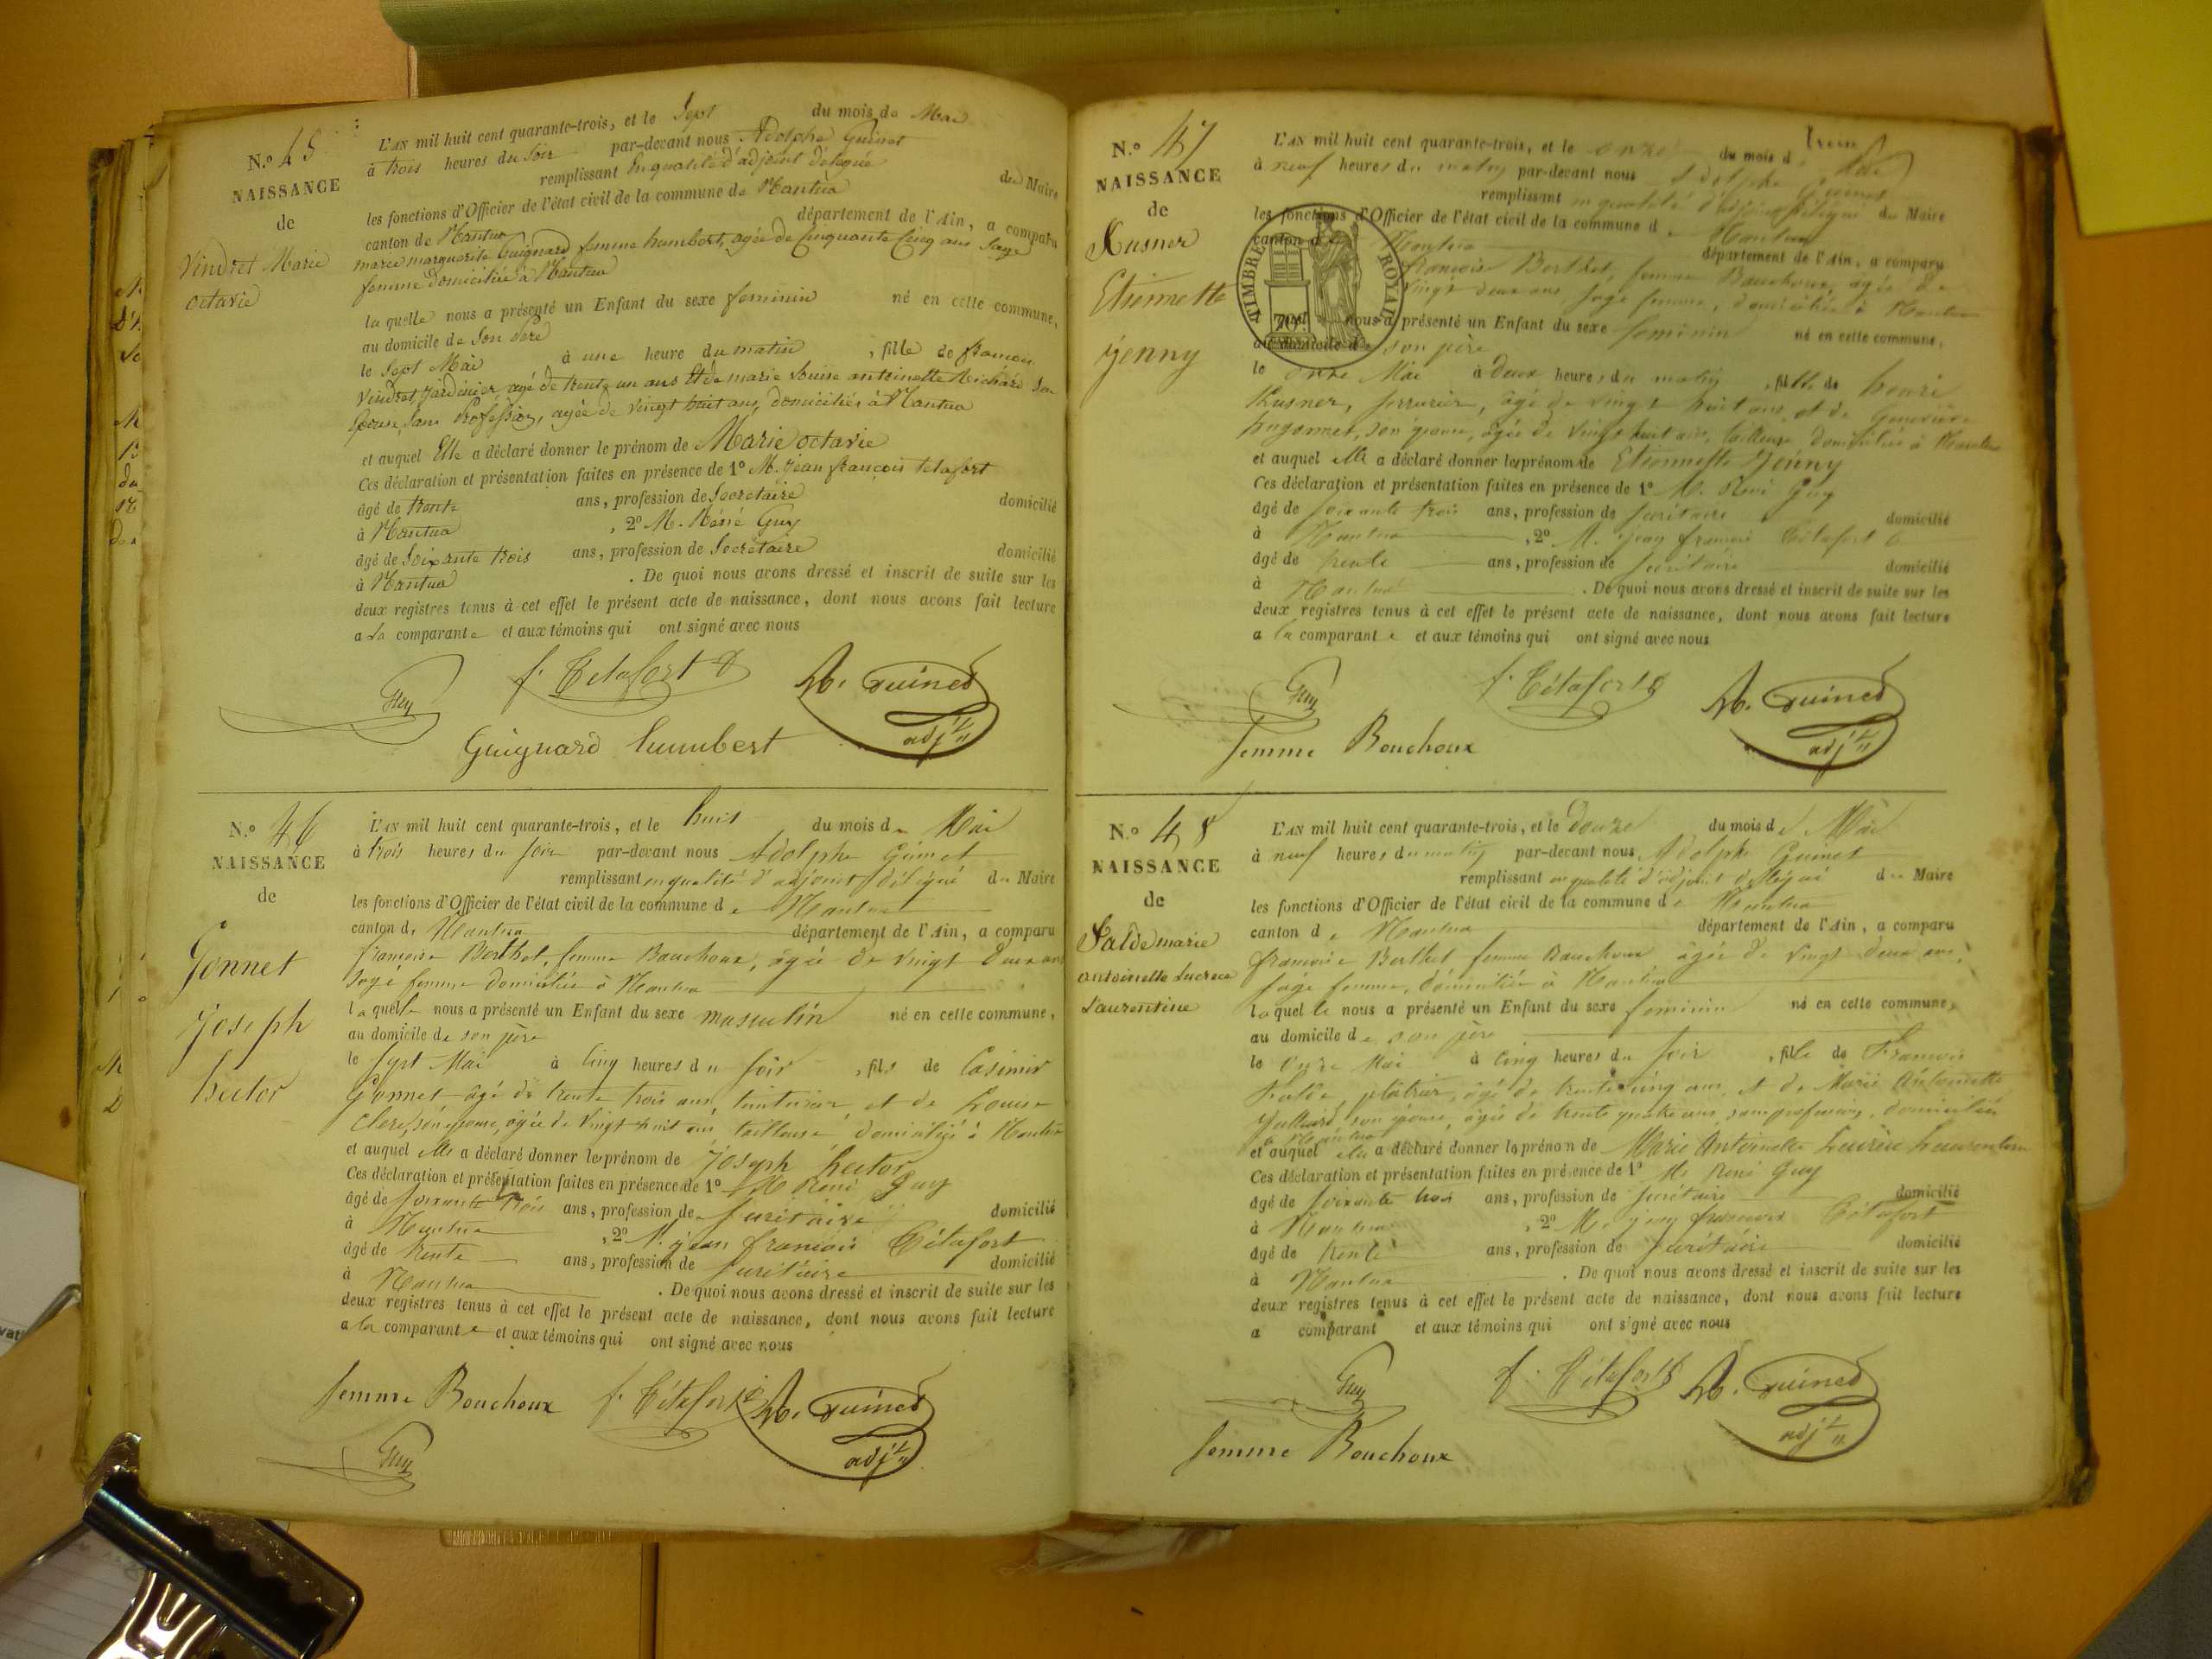 N.o 45
NAISSANCE
de
Vindret Marie
octavie
L'AN mil huit cent quarante-trois, et le Sept du mois de Mai
à trois heures du Soir par-devant nous Adolphe Guinet
remplissant En qualité d'adjoint délégué du Maire
les fonctions d'Officier de l'état civil de la commune de Nantua
canton de Nantua département de l'Ain, a comparu
marie marguerite Guignard femme humbert, agée de Cinquante Cinq ans Sage
femme domiciliée à Nantua
laquelle nous a présenté un Enfant du sexe feminin né en cette commune,
au domicile de Son Père
le Sept Mai à une heure du matin, fille de
Vindret, Jardinier, agé de trente un ans Et de marie Louise antoinette Richard Son
Epouse, Sans Profession, agée de Vingt huit ans, domiciliés à Nantua
et auquel Elle a déclaré donner le prénom de Marie octavie
Ces déclaration et présentation faites en présence de 1o M. Jean françois tetafort
âgé de trente ans, profession de Secretaire domicilié
à Nantua, 2o M. Réné Guy
âgé de Soixante trois ans, profession de Secretaire domicilié
à Nantua. De quoi nous avons dressé et inscrit de suite sur les
deux registres tenus à cet effet le présent acte de naissance, dont nous avons fait lecture
a la comparante et aux témoins qui ont signé avec nous
Guy f. Tétafort A. Guinet
adjt
Guignard humbert
N.o 46
NAISSANCE
de
Gonnet
Joseph
hector
L'AN mil huit cent quarante-trois, et le huit du mois de Mai
à trois heures du soir par-devant nous Adolphe Guinet
remplissant en qualité d'adjoint délégué du Maire
les fonctions d'Officier de l'état civil de la commune de Nantua
canton de Nantua département de l'Ain, a comparu
françoise Berthet, femme Bouchoux, agée de vingt deux ans
sage femme domiciliée à Nantua
laquelle nous a présenté un Enfant du sexe masculin né en cette commune,
au domicile de son père
le sept Mai à cinq heures du soir, fils de Casimir
Gonnet agé de trente trois ans, teinturier, et de Louise
Clerc, son epouse, agée de vingt huit ans tailleuse, domiciliés à Nantua
et auquel elle a déclaré donner les prénom de Joseph hector
Ces déclaration et présentation faites en présence de 1o M René Guy
âgé de soixante trois ans, profession de secrétaire domicilié
à Nantua, 2o M. jean françois Tétafort
âgé de trente ans, profession de secrétaire domicilié
à Nantua. De quoi nous avons dressé et inscrit de suite sur les
deux registres tenus à cet effet le présent acte de naissance, dont nous avons fait lecture
a la comparante et aux témoins qui ont signé avec nous
femme Bouchoux f. Tétafort A. Guinet
adjt
Guy
N.o 47
NAISSANCE
de
Kusner
Etiennette
Jenny
L'AN mil huit cent quarante-trois, et le onze du mois de Mai
à neuf heures du matin par-devant nous Adolphe Guinet
remplissant en qualité d'adjoint délégué du Maire
les fonctions d'Officier de l'état civil de la commune de Nantua
canton de Nantua département de l'Ain, a comparu
françoise Berthet, femme Bouchoux, agée de
vingt deux ans, sage femme, domiciliée à Nantua
TIMBRE ROYAL
nous a présenté un Enfant du sexe feminin né en cette commune,
au domicile de son père
le onze Mai à deux heures du matin, fille de henri
Kusner, serrurier, agé de vingt huit ans, et de Geneviève
son epouse, agée de vingt huit ans, tailleuse, domiciliés à Nantua
et auquel elle a déclaré donner les prénom de Etiennette Jenny
Ces déclaration et présentation faites en présence de 1o M. René Guy
âgé de soixante trois ans, profession de secrétaire domicilié
à Nantua, 2o M. jean françois Tétafort
âgé de trente ans, profession de secrétaire domicilié
à Nantua. De quoi nous avons dressé et inscrit de suite sur les
deux registres tenus à cet effet le présent acte de naissance, dont nous avons fait lecture
a la comparante et aux témoins qui ont signé avec nous
Guy f. Tétafort A. Guinet
adjt
femme Bouchoux
N.o 48
NAISSANCE
de
Falde marie
antoinette Lucrece
Laurentine
L'AN mil huit cent quarante-trois, et le Douze du mois de Mai
à neuf heures du matin par-devant nous Adolphe Guinet
remplissant en qualité d'adjoint délégué du Maire
les fonctions d'Officier de l'état civil de la commune de Nantua
canton de Nantua département de l'Ain, a comparu
françoise Berthet femme Bouchoux agée de vingt deux ans,
sage femme, domiciliée à Nantua
laquelle nous a présenté un Enfant du sexe feminin né en cette commune,
au domicile de son père
le onze Mai à cinq heures du soir, fille de François
Falde, platrier, agé de trente cinq ans, et de Marie Antoinette
son épouse, agée de trente quatre ans, sans profession, domiciliés
à Nantua
et auquel elle a déclaré donner les prénom de Marie Antoinette Lucrèce Laurentine
Ces déclaration et présentation faites en présence de 1o M. René Guy
âgé de soixante trois ans, profession de secrétaire domicilié
à Nantua, 2o M. jean françois Tétafort
âgé de trente ans, profession de secrétaire domicilié
à Nantua. De quoi nous avons dressé et inscrit de suite sur les
deux registres tenus à cet effet le présent acte de naissance, dont nous avons fait lecture
a comparant et aux témoins qui ont signé avec nous
Guy f. Tétafort A. Guinet
adjt
femme Bouchoux